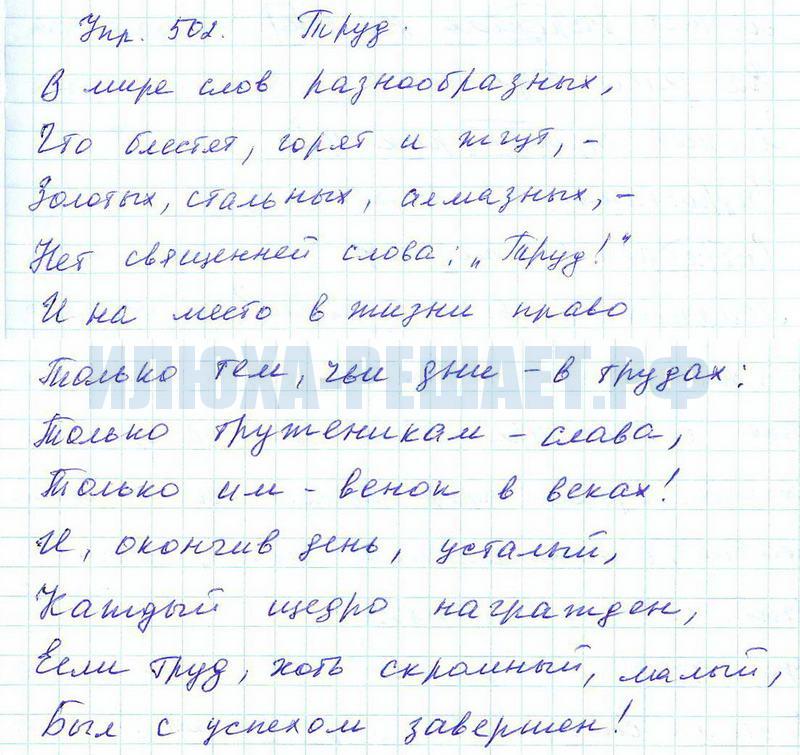 Упр. 502. Труд.
В мире слов разнообразных,
Что блестят, горят и жгут, –
Золотых, стальных, алмазных, –
Нет священней слова: „Труд!"
И на место в жизни право
Только тем, чьи дни – в трудах:
ИЛЮХА-РЕШАЕТ.РФ
Только труженикам – слава,
Только им – венок в веках!
И, окончив день, усталый,
Каждый щедро награжден,
Если труд, хоть скромный, малый,
Был с успехом завершен!